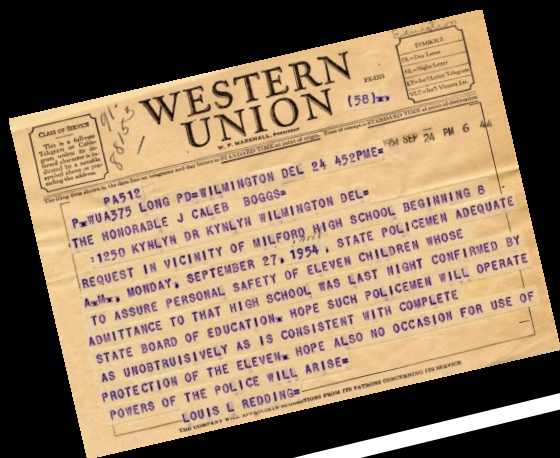 Education
CLASS OF SERVICE
This is a full-rate
Telegram or Cable-
gram unless its de-
ferred character is in-
dicated by a suitable
symbol above or pre-
ceding the address.
WESTERN
UNION
W. P. MARSHALL, PRESIDENT
FX-1201
(58)
SYMBOLS
DL=Day Letter
NL=Night Letter
LT=Int'l Letter Telegram
VLT=Int'l Victory Ltr.
The filing time shown in the date line on telegrams and day letters is STANDARD TIME at point of origin. Time of receipt is STANDARD TIME at point of destination
1954 SEP 24 PM 6 44
PA512
P.WUA375 LONG PD=WILMINGTON DEL 24 452PME=
THE HONORABLE J CALEB BOGGS=
:1250 KYNLYN DR KYNLYN WILMINGTON DEL=
REQUEST IN VICINITY OF MILFORD HIGH SCHOOL BEGINNING 8
A.M., MONDAY, SEPTEMBER 27, 1954, STATE POLICEMEN ADEQUATE
TO ASSURE PERSONAL SAFETY OF ELEVEN CHILDREN WHOSE
ADMITTANCE TO THAT HIGH SCHOOL WAS LAST NIGHT CONFIRMED BY
STATE BOARD OF EDUCATION. HOPE SUCH POLICEMEN WILL OPERATE
AS UNOBTRUISIVELY AS IS CONSISTENT WITH COMPLETE
PROTECTION OF THE ELEVEN. HOPE ALSO NO OCCASION FOR USE OF
POWERS OF THE POLICE WILL ARISE=
LOUIS L REDDING=
THE COMPANY WILL APPRECIATE SUGGESTIONS FROM ITS PATRONS CONCERNING ITS SERVICE